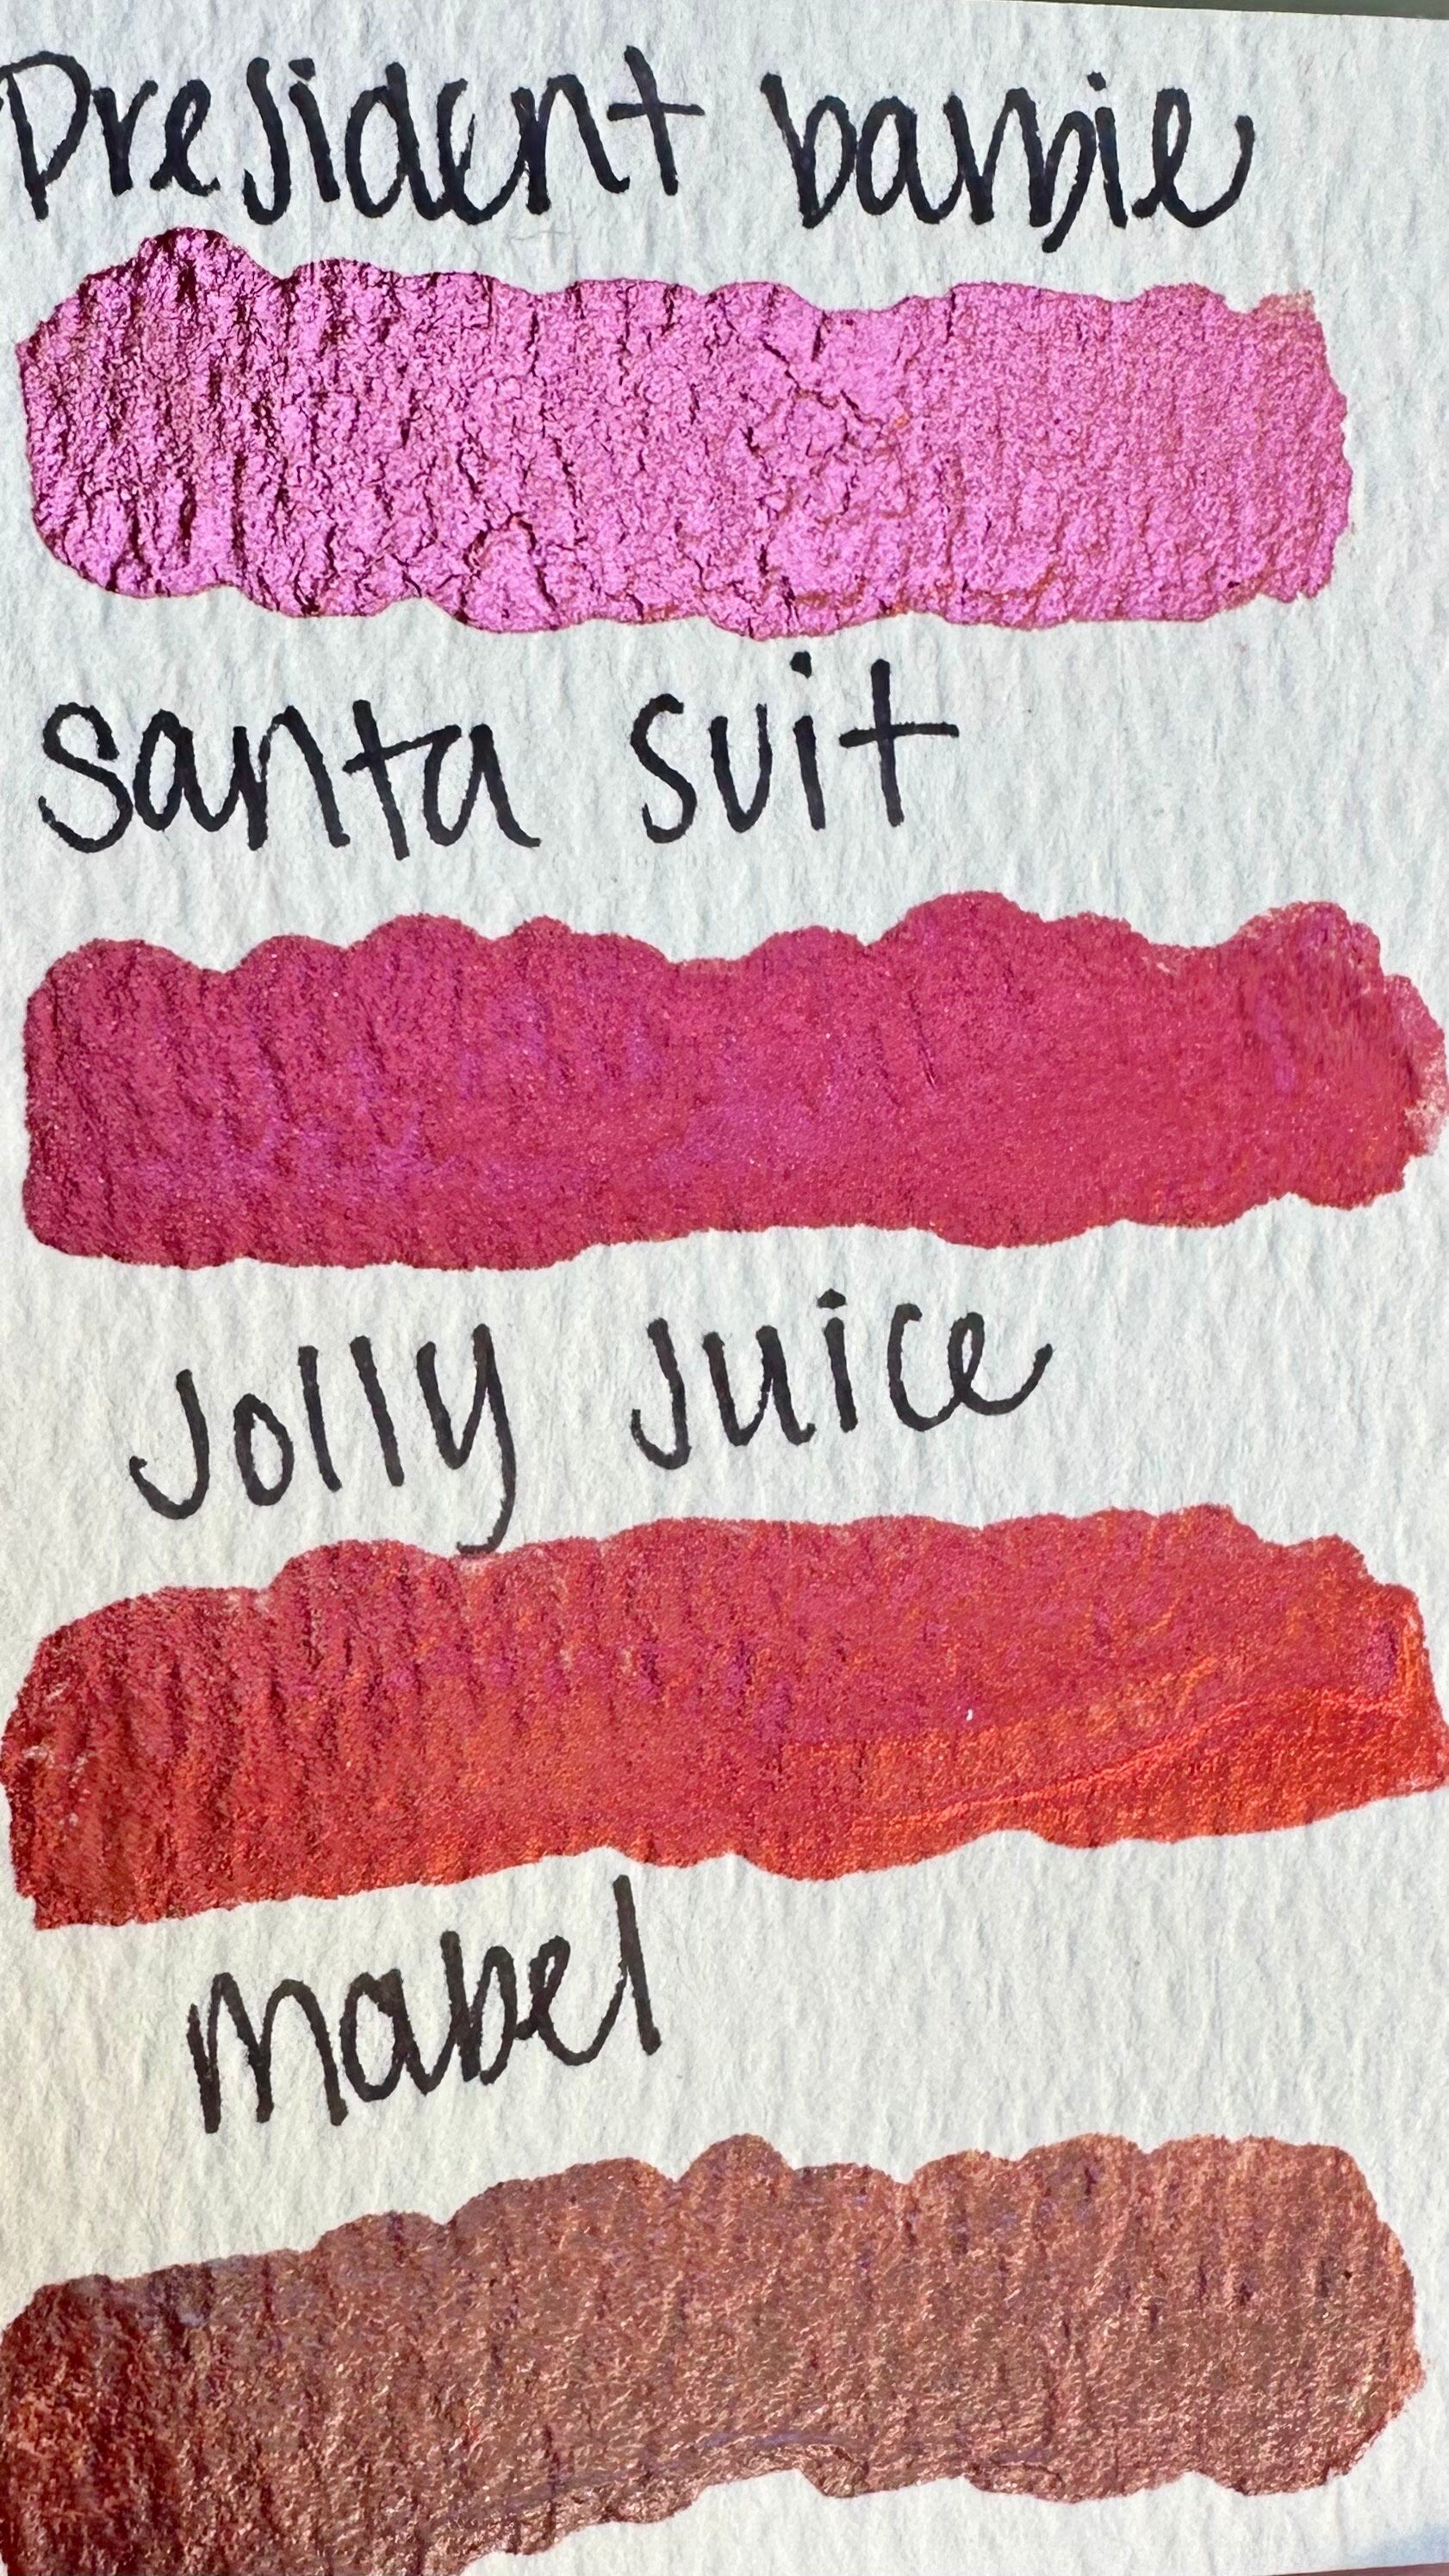 President barbie
Santa suit
Jolly Juice
Mabel